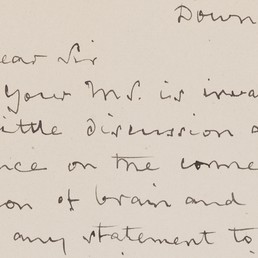 Down
ear Sir
Your MS. is inva
ittle discussion o
nce on the conne
on of brain and
any statement to